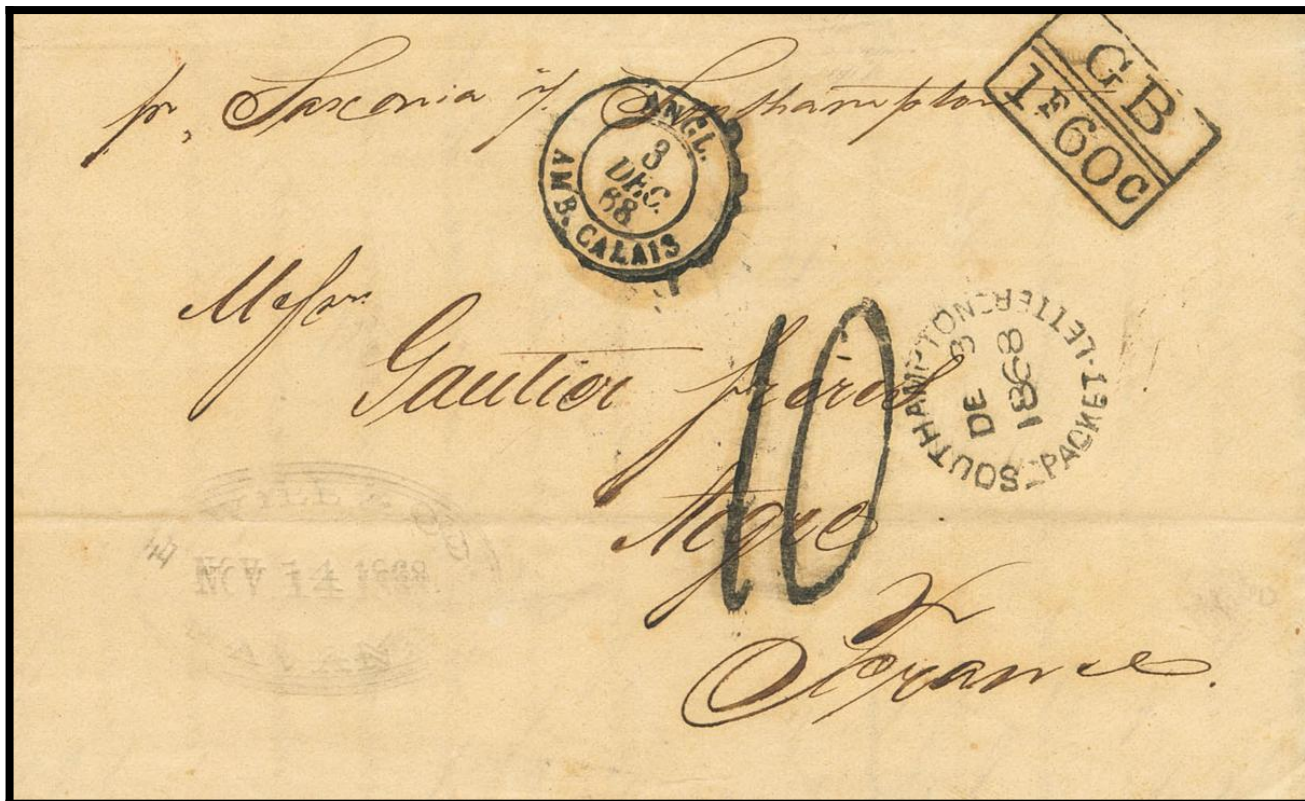 pr, Saxonia // Southampton
GB
1F60c
ANGL.
3
DEC.
68
AMB. CALAIS
Messrs
Gautier frères
10
SOUTHAMPTON
PACKET-LETTER
DE 3
1868
NOV 14 1868
France.